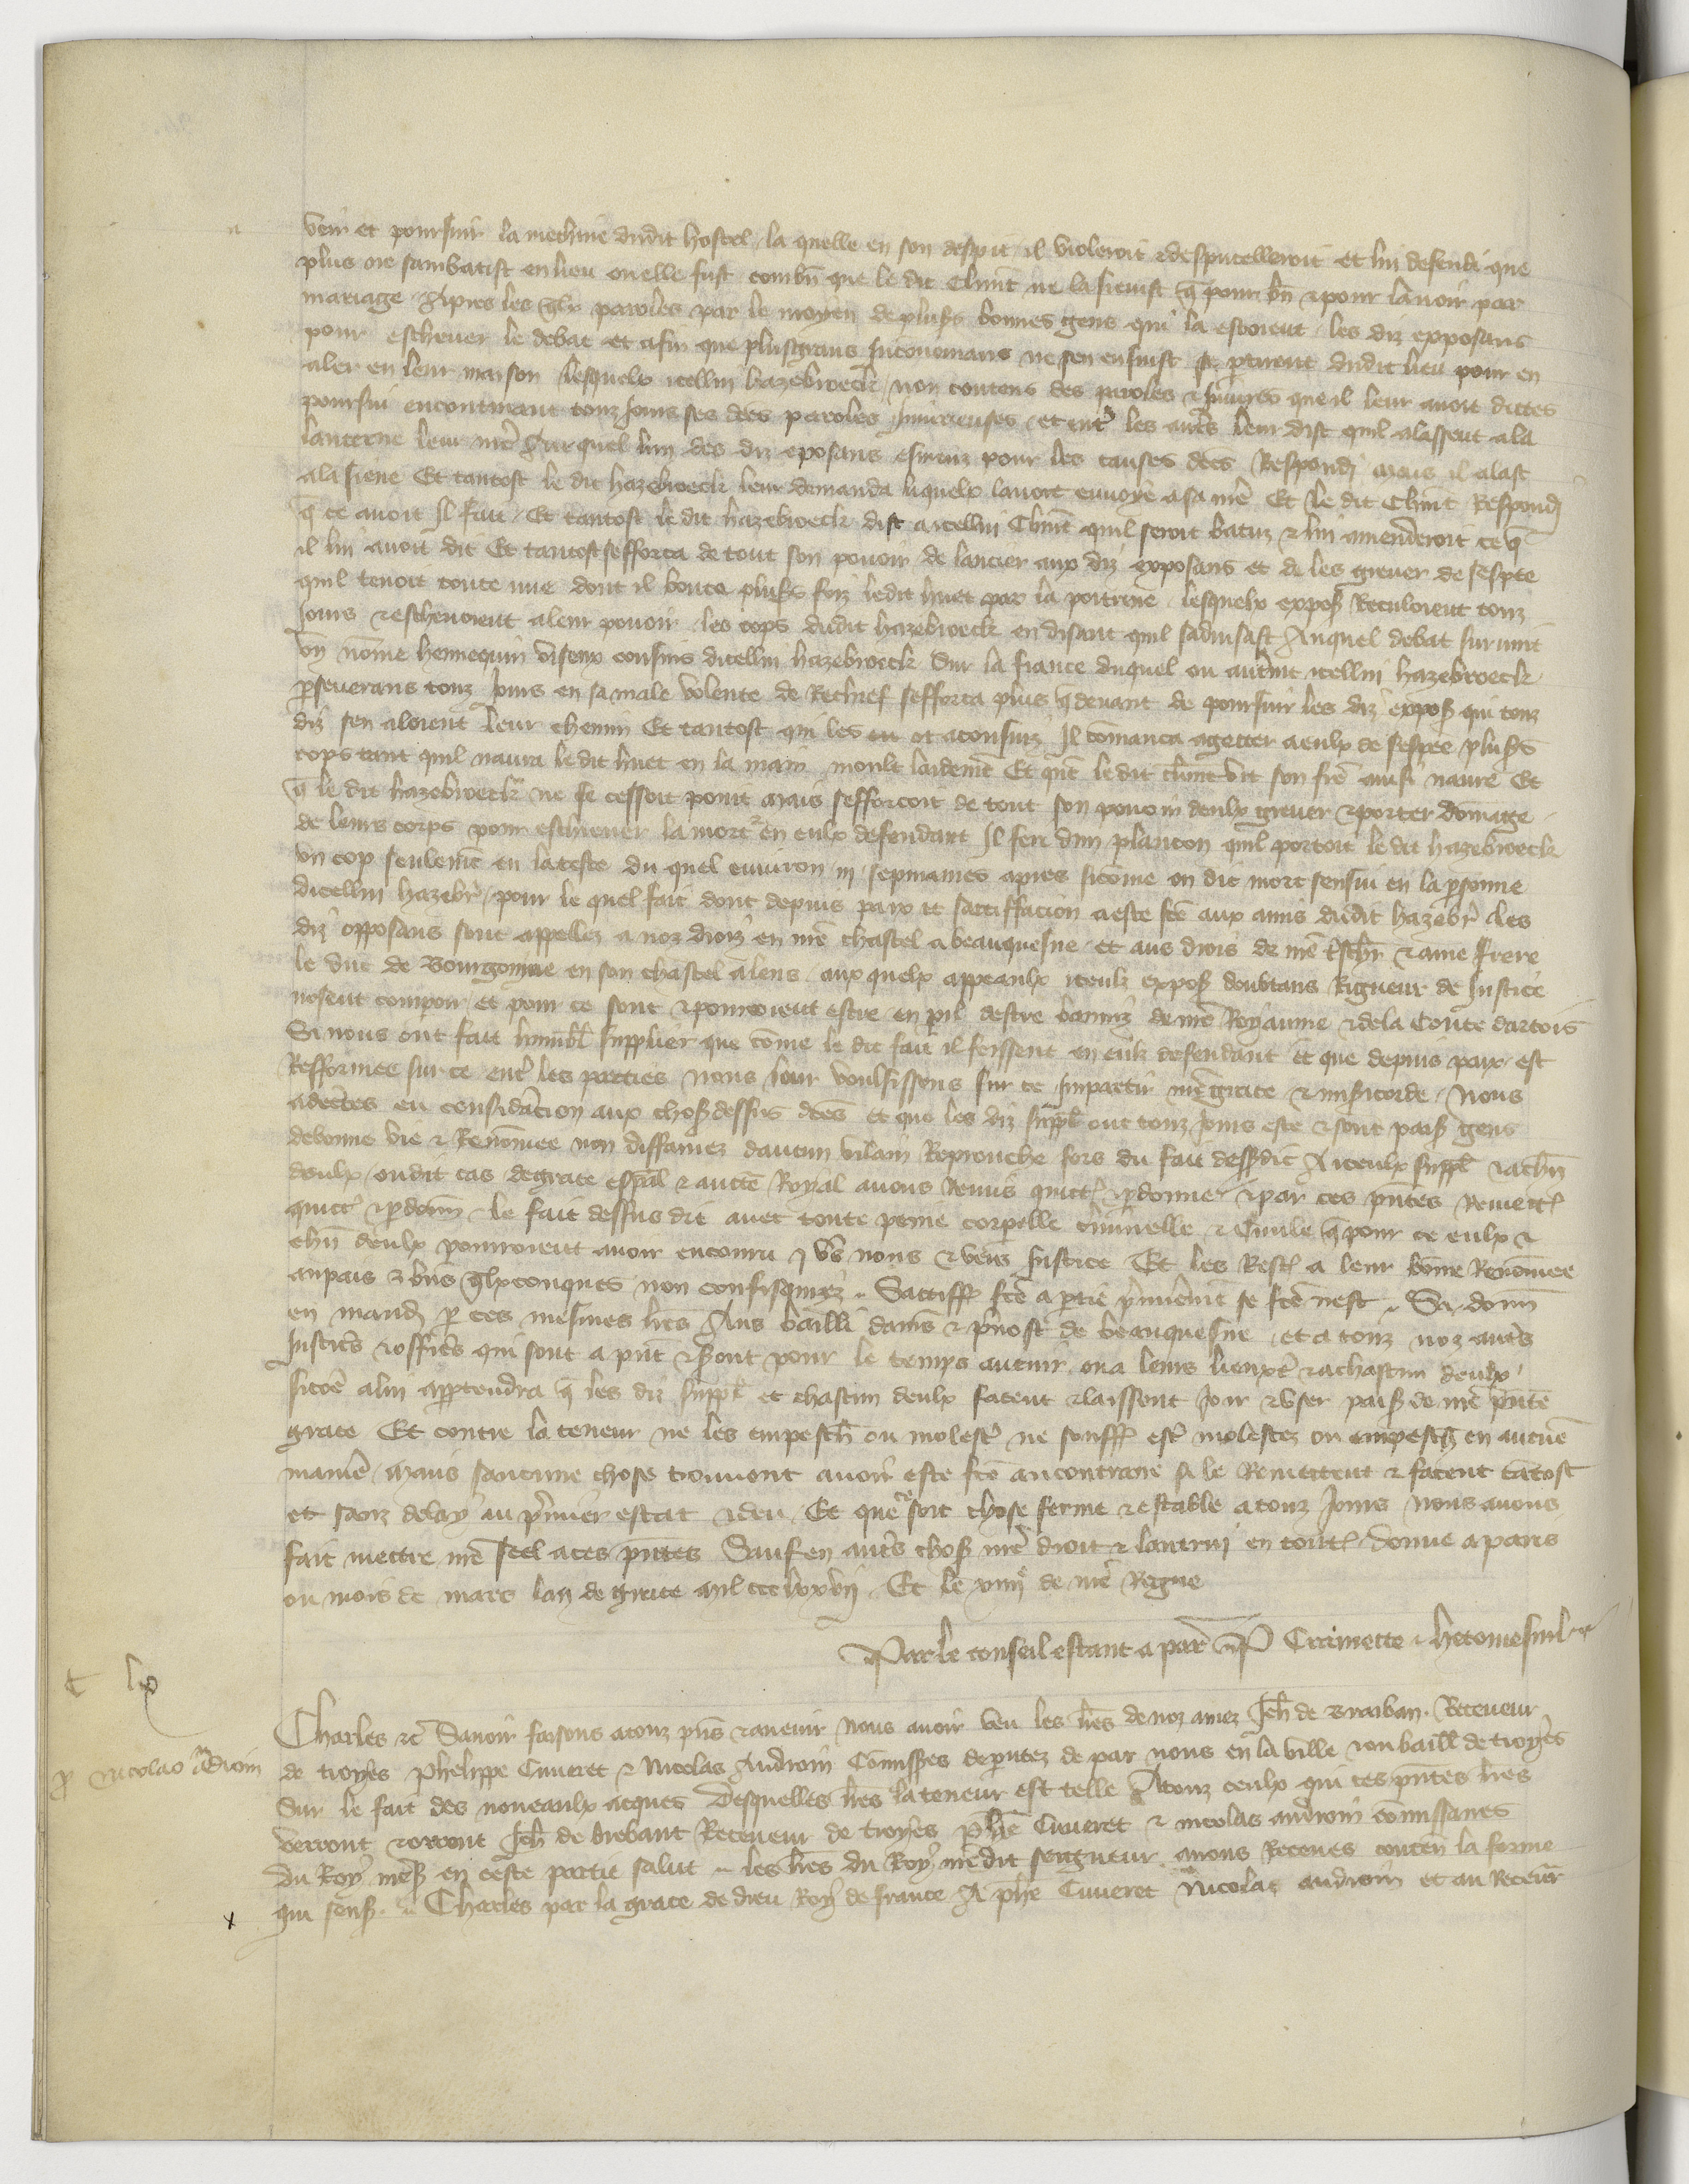 venir et poursuir la meschine dudit hostel la quelle en son despit il violeroit & despucelleroit et lui defendi que
plus ne sambatist en lieu ou elle fust combn que le dit Climt ne la sievist q̄ pour bn & pour lavoir par
mariage Apres les qlx paroles par le moyen de plusrs bonnes gens qui la estoient les diz exposans
pour eschever le debat et afin que plusgrans Inconveniens ne sen ensuist se ptirent dudit lieu pour en
aler en leur maison lesquelx icellui hazebroeck non contens des paroles & Iniures que il leur avoit dictes
poursui encontinent touz jours ses dces paroles Iniurieuses et ent les autrs leur dist quil alassent a la
lanterne leur mer Sur quel lun des diz exposans esmeuz pour les causes dces Respondi mais il alast
a la siene Et tantost le dit hazebroeck leur demanda liquelx lavoit envoye a sa mer Et le dit Climt Respondi
q̄ ce avoit Il fait Et tantost le dit hazebroeck dist a icellui Climt quil seroit batuz & lui amenderoit ce q̄
il lui avoit dit Et tantost sefforca de tout son povoir de lancier aux diz exposans et de les grever de sespee
quil tenoit toute nue dont il bouta plusrs foiz ledit huet par la poitrine lesquelx expos Reculoient touz
jours & eschevoient a leur povoir les cops dudit hazebroeck en disant quil sadvisast Auquel debat survint
un nome hennequin cousins dicellui hazebroeck Sur la fiance duquel ou autrmt icellui hazebroeck
pseverans touz jours en sa male volente de Rechief sefforca plus q̄ devant de poursuir les diz expos qui touz
diz sen aloient leur chemin Et tantost qui les ot aconsuiz Il comanca a getter a eulx de sespee plusrs
cops tant quil navra le dit huet en la main moult laidemt Et qnt ledit climt vit son fre ainsi navre Et
q̄ le dit hazebroeck ne se cessoit point mais sefforcoit de tout son povoir deulx grever & porter domage
de leurs corps pour eschever la mort & en eulx defendant Il feri dun plancon quil portoit le dit hazebroeck
un cop seulemt en la teste du quel environ iij sepmaines apres sicome on dit mort sensui en la psonne
dicellui hazebr pour le quel fait dont depuis paix et satiffacion a este fce aux amis dudit hazebr les
diz opposans sont appellez a noz drois en nre chastel a beauquesne et aus drois de nre tschr & ame frere
le duc de Bourgoingne en son chastel a lens aux quelx appeaulx iceulx expos doubtans Rigueur de Justice
nosent compoir et pour ce sont & pourroient estre en pil destre baniz de nre Royaume & de la Conte dartois
Si nous ont fait humbl supplier que come le dit fait il feissent en eulx defendant et que depuis paix est
Refformee sur ce ent les parties nous leur voulsissions sur ce Impartir nre grace & misicorde Nous
adcertes eu considacion aux chos dessus dces et que les diz suppl ont touz jours este & sont pais gens
de bonne vie & Renomee non diffamez daucun vilain Reprouche fors du fait dessdit A iceulx suppl & a chn
deulx ou dit cas de grace espal & aucte Royal avons Remis quicte & pdonne & par ces pntes Remett
quict & pdonn le fait dessus dit avec toute peine corpelle criminelle & Civile q̄ pour ce eulx &
chn deulx pourroient avoir encouru vs nous & vers Justice Et les Rest a leur bonne Renomee
au pais & biens qlxconques non confisquez Satiff fce a ptie pmieremt se fce nest Si donn
en mand p ces mesmes lres Aus bailli damns & pvost de beauquesne et a touz noz autrs
Justicrs & officrs qui sont a pnt & sont pour le temps avenir ou a leurs lieuxt & a chascun deulx
sicoe a lui apptendra q̄ les diz suppl et chascun deulx facent & laissent joir & user pais de nre pnte
grace Et contre la teneur ne les empesch ou molest ne souff est molestez ou empesch en aucune
maniere Mais saucune chose trouvent avoir este fce au contraire si le Remettent & facent tantost
et sanz delay au premier estat & deu Et que ce soit chose ferme & estable a touz jours Nous avons
fait mettre nre seel a ces pntes Sauf en autrs chos nre droit & lautrui en toutes donne a paris
ou mois de mars lan de grace mil ccc lxxvij Et le xiiije de nre Regne
Par le conseil estant a par P Cramette hetomesnil
C lx
Charles &c Savoir faisons a touz pns & avenir Nous avoir veu les lres de noz amez Jeh de Braiban Receveur
p Nicolao Androin
de troyes Phelippe Cuveret & Nicolas Androin Comissres deputez de par nous en la ville & ou baill de troyes
Sur le fait des nouveaulx acques Desquelles lres la teneur est telle A touz ceulx qui ces pntes lres
verront & orront Jeh de brebant Receveur de troyes phe Cuveret & nicolas androin comissaires
du Roy nres en ceste partie salut les lres du Roy nre dit seigneur avons Receues conten la forme
qui sens Charles par la grace de dieu Roy de france A phe Cuveret Nicolas androin et au Recevr